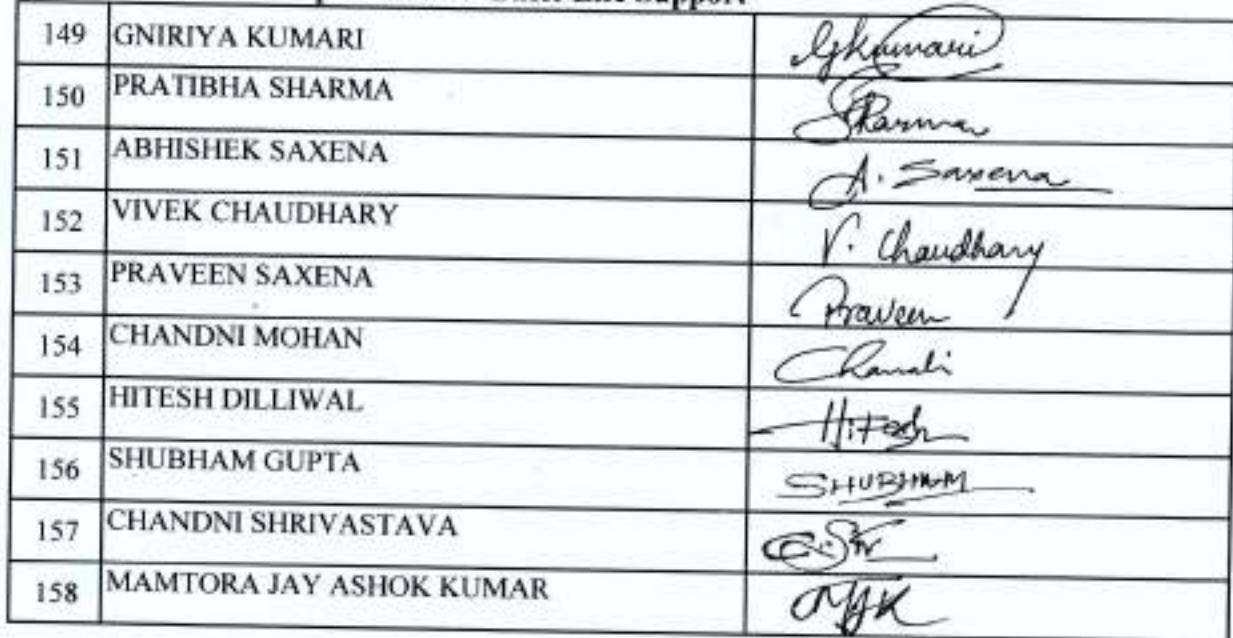 Support
149 GNIRIYA KUMARI Gkumari
150 PRATIBHA SHARMA Sharma
151 ABHISHEK SAXENA A. Saxena
152 VIVEK CHAUDHARY V. Chaudhary
153 PRAVEEN SAXENA Praveen
154 CHANDNI MOHAN
155 HITESH DILLIWAL Hitesh
156 SHUBHAM GUPTA SHUBHAM
157 CHANDNI SHRIVASTAVA
158 MAMTORA JAY ASHOK KUMAR MJK